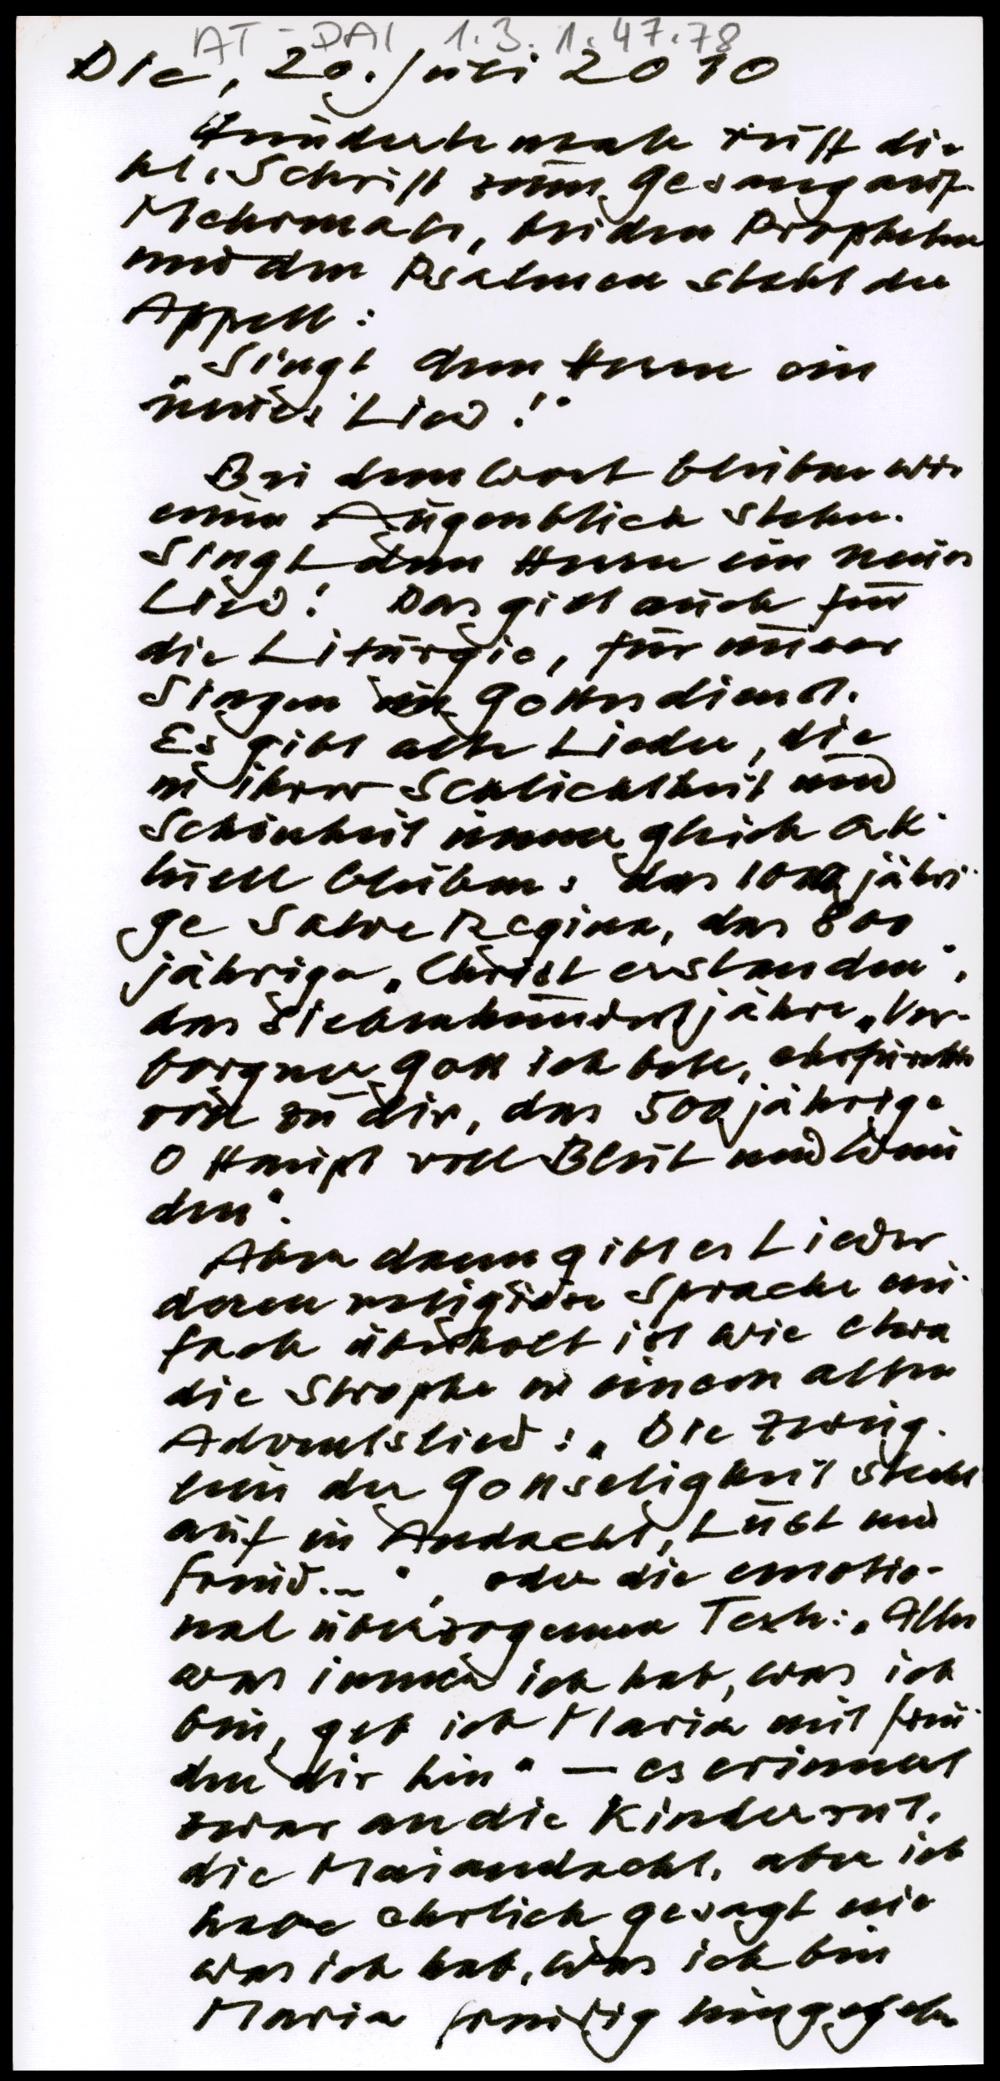 AT-DAI 1.3.1.47.78
Die, 20. Juli 2010
Hundertemale ruft die
hl. Schrift zum Gesang auf.
Mehrmals, bei den Propheten
und den Psalmen steht der
Appell:
„Singt dem Herrn ein
neues Lied!"
Bei dem Wort bleiben wir
einen Augenblick stehen.
Singt dem Herrn ein neues
Lied! Das gilt auch für
die Liturgie, für unser
Singen im Gottesdienst.
Es gibt alte Lieder, die
in ihrer Schlichtheit und
Schönheit immer gleich ak-
tuell bleiben: das 1000 jähri-
ge Salve Regina, das 800
jährige „Christ erstanden",
das siebenhundertjähre „Ver-
borgner Gott ich bete, ehrfürchtig
zu dir, das 500 jährige
O Haupt voll Blut und Wun
den".
Aber dann gibt es Lieder
deren religiöse Sprache ein-
fach überholt ist wie etwa
die Strophe in einem alten
Adventslied: „Die Zweig-
lein der Gottseligkeit steckt
auf in Andacht, Lust und
Freud...", oder die emotio-
nal überzogenen Texte: „Alles
was immer ich hab, was ich
bin, geb ich Maria mit Freu-
den dir hin" — es erinnert
zwar an die Kinderzeit,
die Maiandacht, aber ich
habe ehrlich gesagt nie
was ich hab, was ich bin
Maria freudig hingegeben